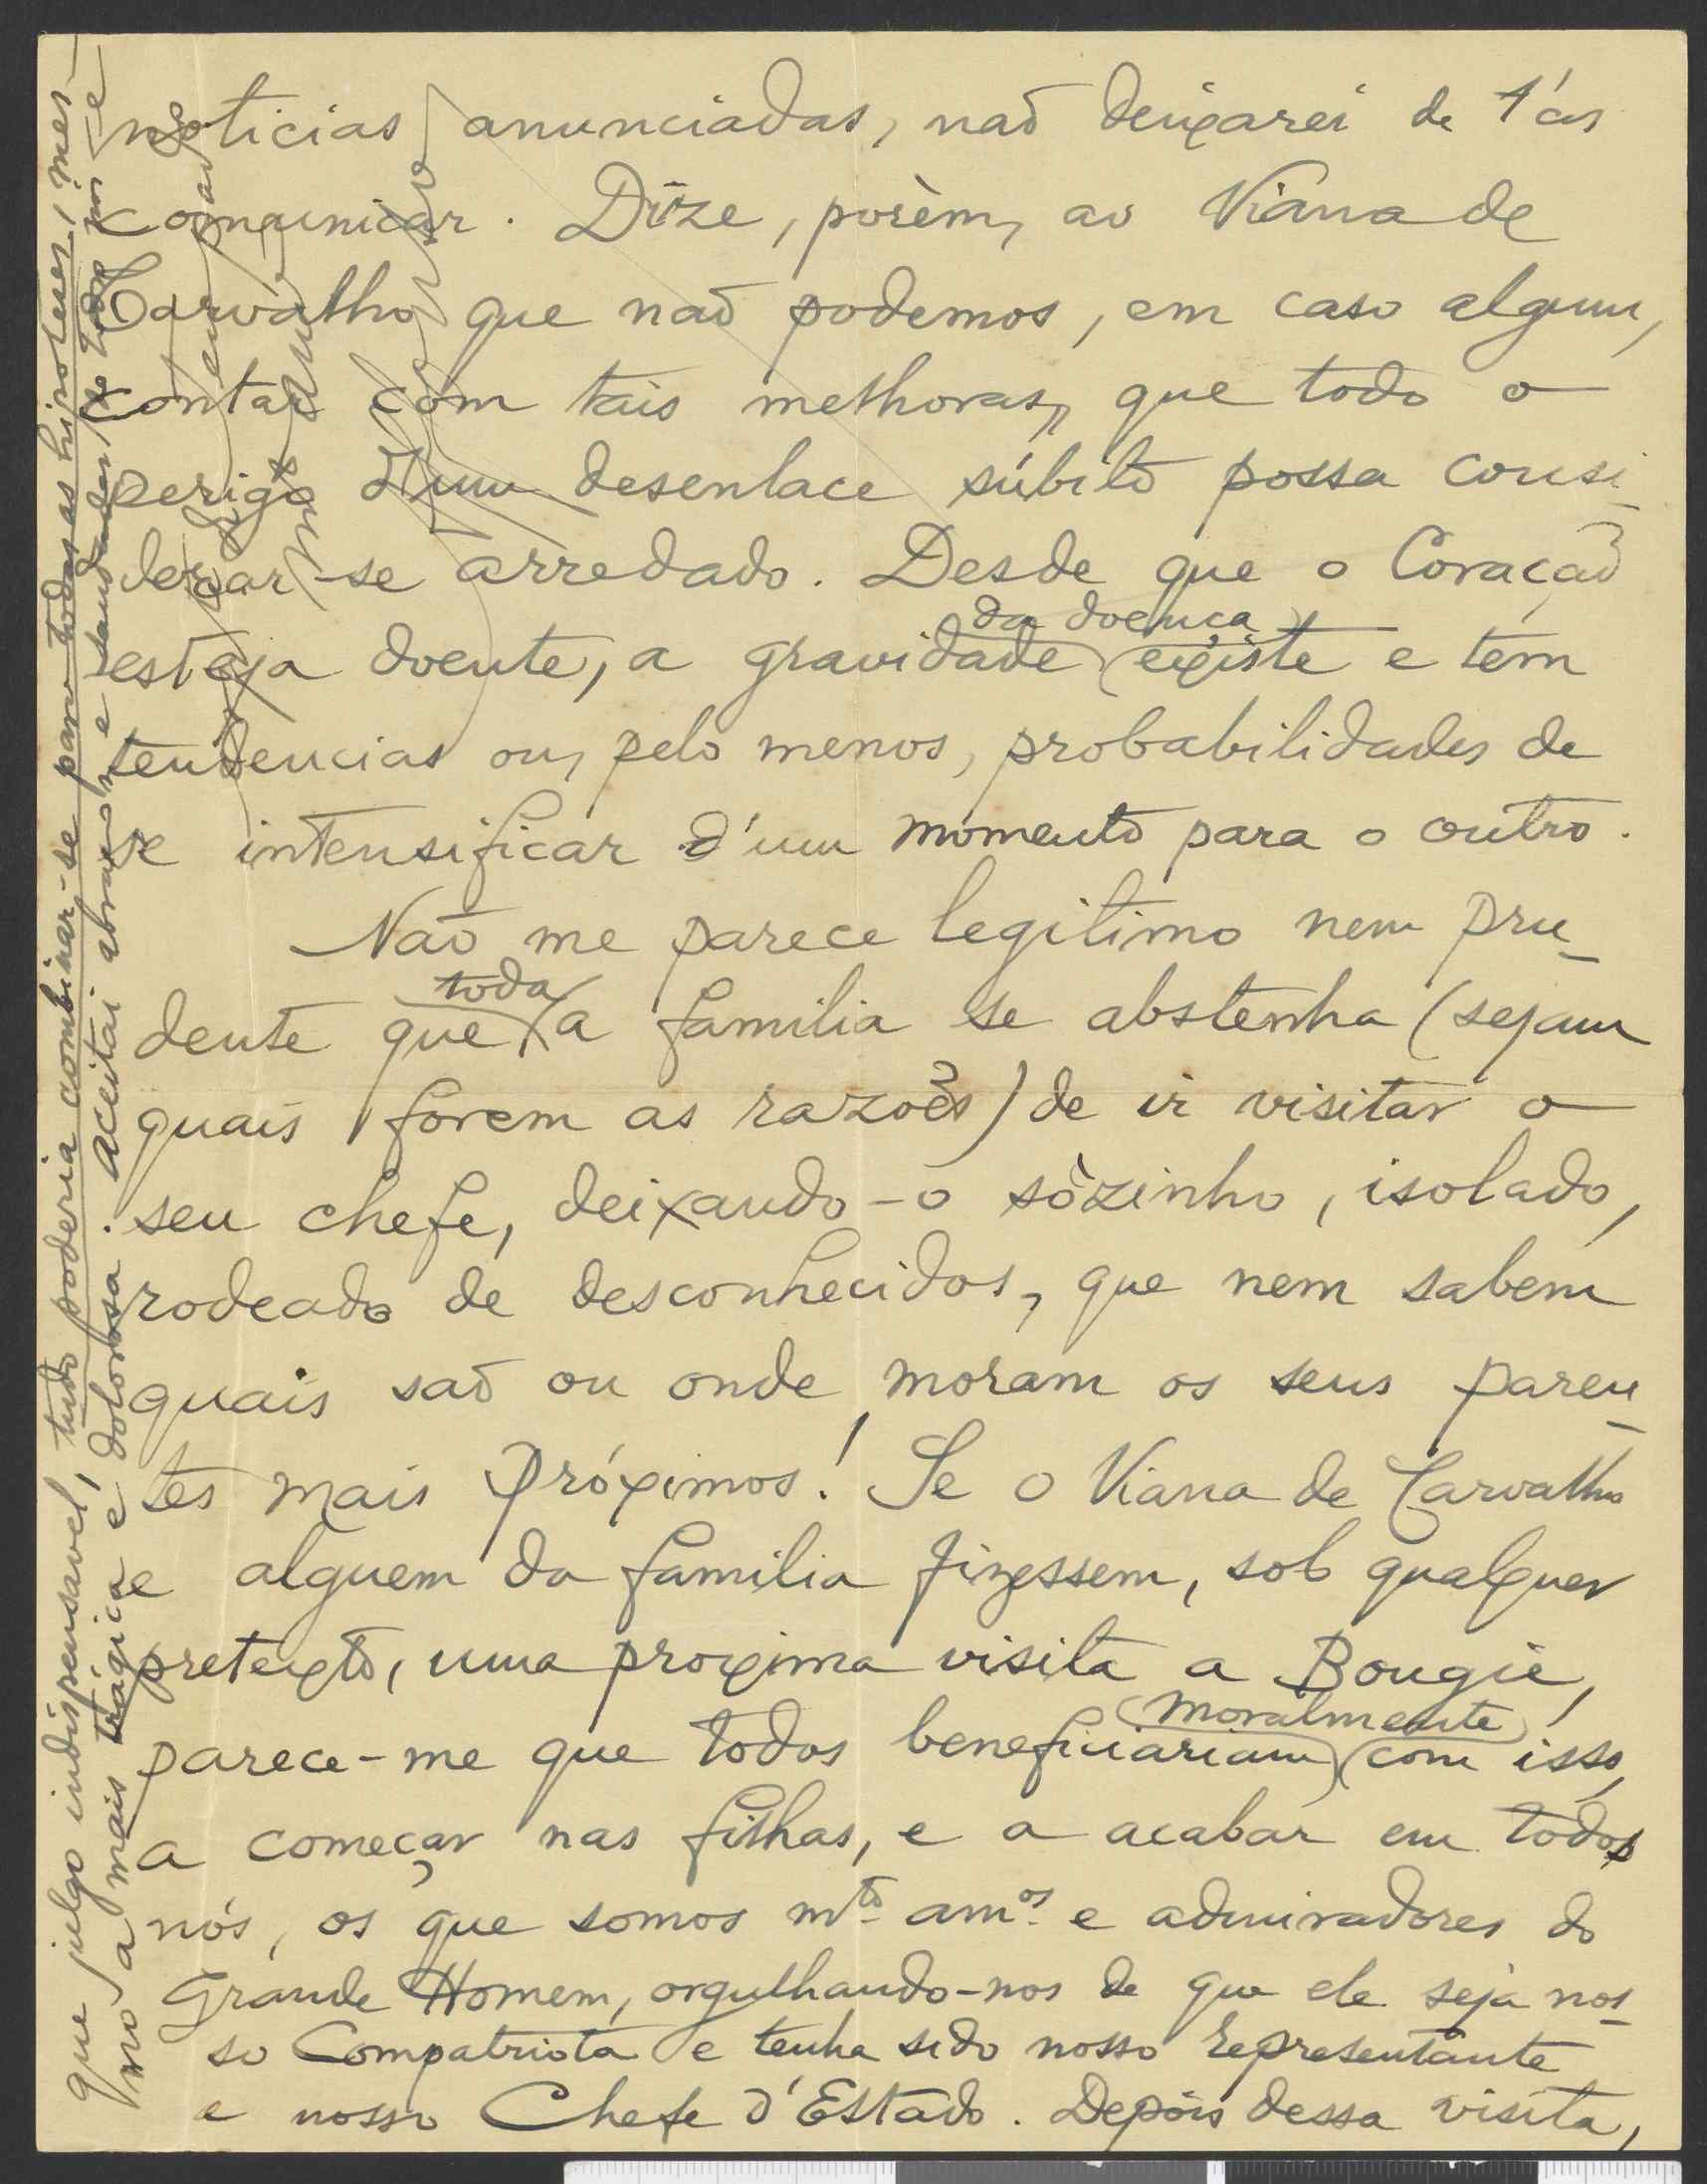 noticias anunciadas, naõ deixarei de t'as
comunicar. Dize, porèm, ao Viana de
Carvalho que naõ podemos, em caso algum,
contar com tais melhoras, que todo o
perigo d'um desenlace súbito possa consi-
derar-se arredado. Desde que o Coraçaõ
esteja doente, a gravidade da doença existe e tem
tendencias ou, pelo menos, probabilidades de
se intensificar d'um momento para o outro.
Naõ me parece legitimo nem pru-
dente que toda a familia se abstenha (sejam
quais forem as razoẽs) de ir visitar o
seu chefe, deixando-o sòzinho, isolado,
rodeado de desconhecidos, que nem sabem
quais saõ ou onde moram os seus paren-
tes mais próximos! Se o Viana de Carvalho
e alguem da familia fizessem, sob qualquer
pretexto, uma proxima visita a Bougie,
parece-me que todos beneficiariam moralmente com isso,
a começar nas filhas, e a acabar em todos
nós, os que somos mto. amos. e admiradores do
Grande Homem, orgulhando-nos de que ele seja nos-
so Compatriota e tenha sido nosso representante
e nosso Chefe d'Estado. Depois dessa visita,
que julgo indispensavel, tudo poderia combinar-se para todas as hipoteses, mes-
mo a mais trágica e dolorosa. Aceitai abraços e saudades de todos